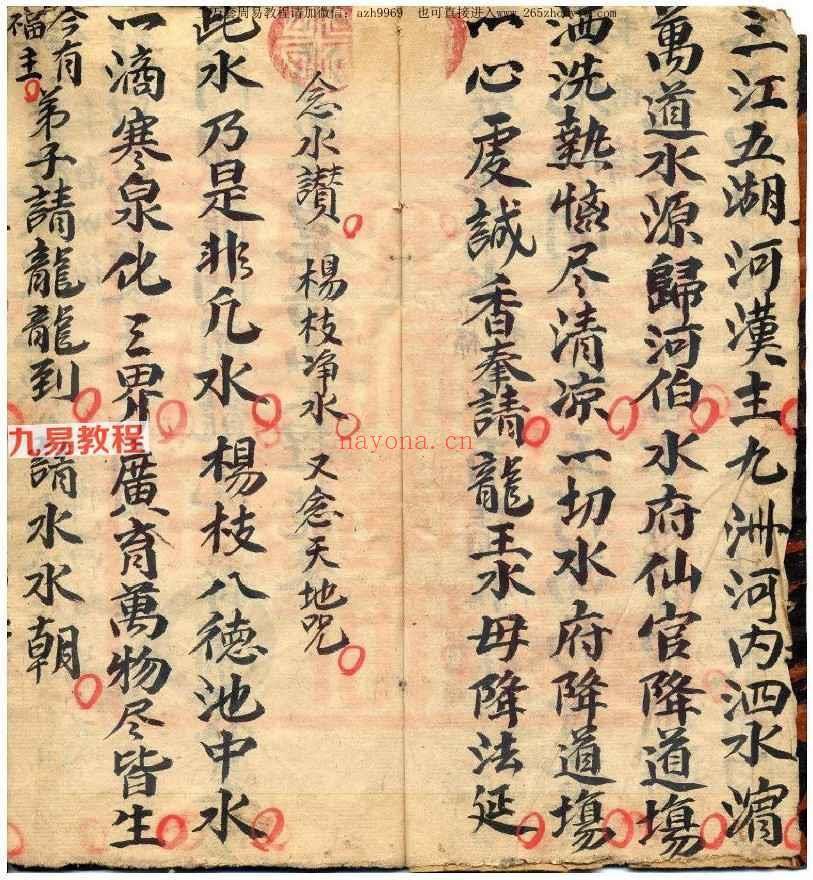 三江五湖河漢主九洲河內泗水濱
萬道水源歸河伯水府仙官降道塲
洒洗熱惱尽清凉一切水府降道塲
以心虔誠香奉請龍王水母降法延
念水讃楊枝净水又念天地咒
此水乃是非凡水楊枝八德池中水
一滴寒泉化三界廣育萬物尽皆生
今有
福主
弟子請龍龍到請水水朝
周易教程请加微信：azh9969 也可直接进入www.265zh
九易教程
nayona.cn